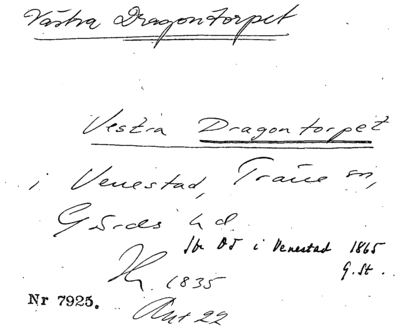 Västra Dragontorpet
Vestra Dragontorpet
i Venestad, Träne sn,
Gärds hd.
i Venestad 1865
G. St.
1835
Nr 7925. Ant 22